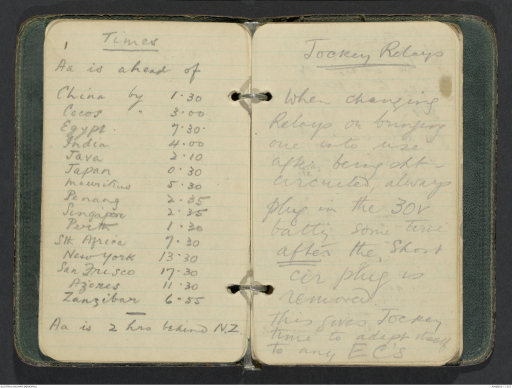 1
Times
Aa is ahead of
China by 1.30
Cocos " 3.00
Egypt. 7.30
India 4.00
Java 2.10
Japan 0.30
Mauritius 5.30
Penang 2.35
Singapore 2.35
Perth 1.30
Sth Africa 7.30
New York 13.30
San Frisco 17.30
Azores 11.30
Zanzibar 6.55
Aa is 2 hrs behind N.Z.
Jockey Relays
When changing
Relays or bringing
one into use
after being sht-
circuited, always
plug in the 30V
batty some time
after the Short
cir plug is
removed.
This gives Jockey
time to adapt itself
to any E.C's